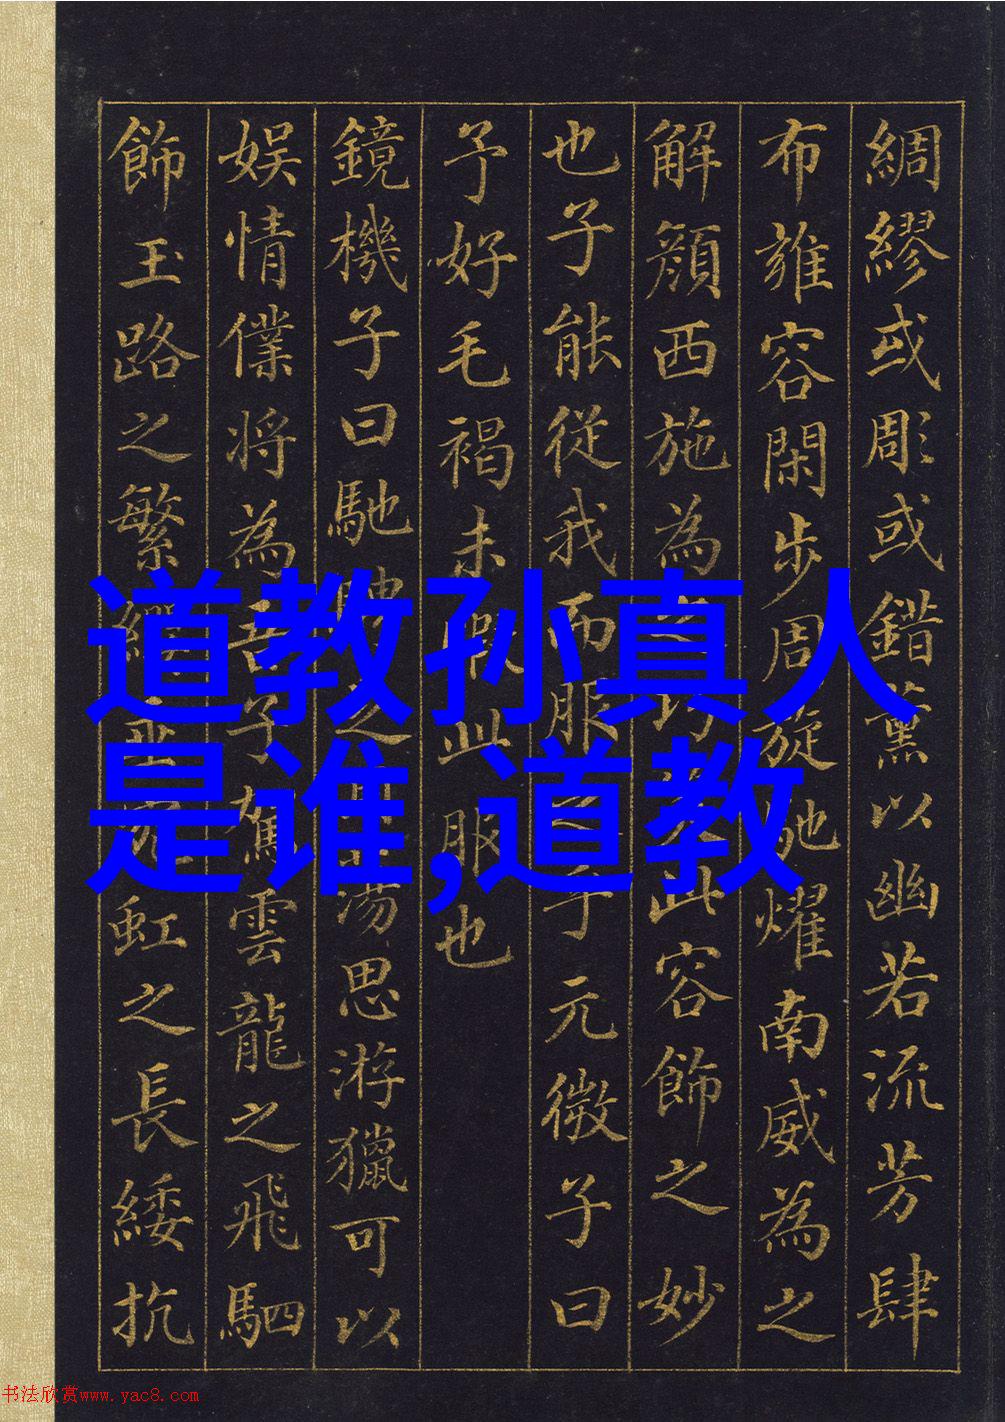 綢繆或彫或錯薰以幽若流芳肆
布雍容閑步周旋馳燿南威為之
解顏西施為巧此容飾之妙
也子能從我而服之乎元微子曰
予好毛褐未暇此服也
鏡機子曰馳騁蕩思游獵可以
娛情僕將為吾子駕雲龍之飛駟
飾玉路之繁纓垂宛虹之長綏抗
道教孙真人
是谁,道教
书法欣赏www.yac8.com